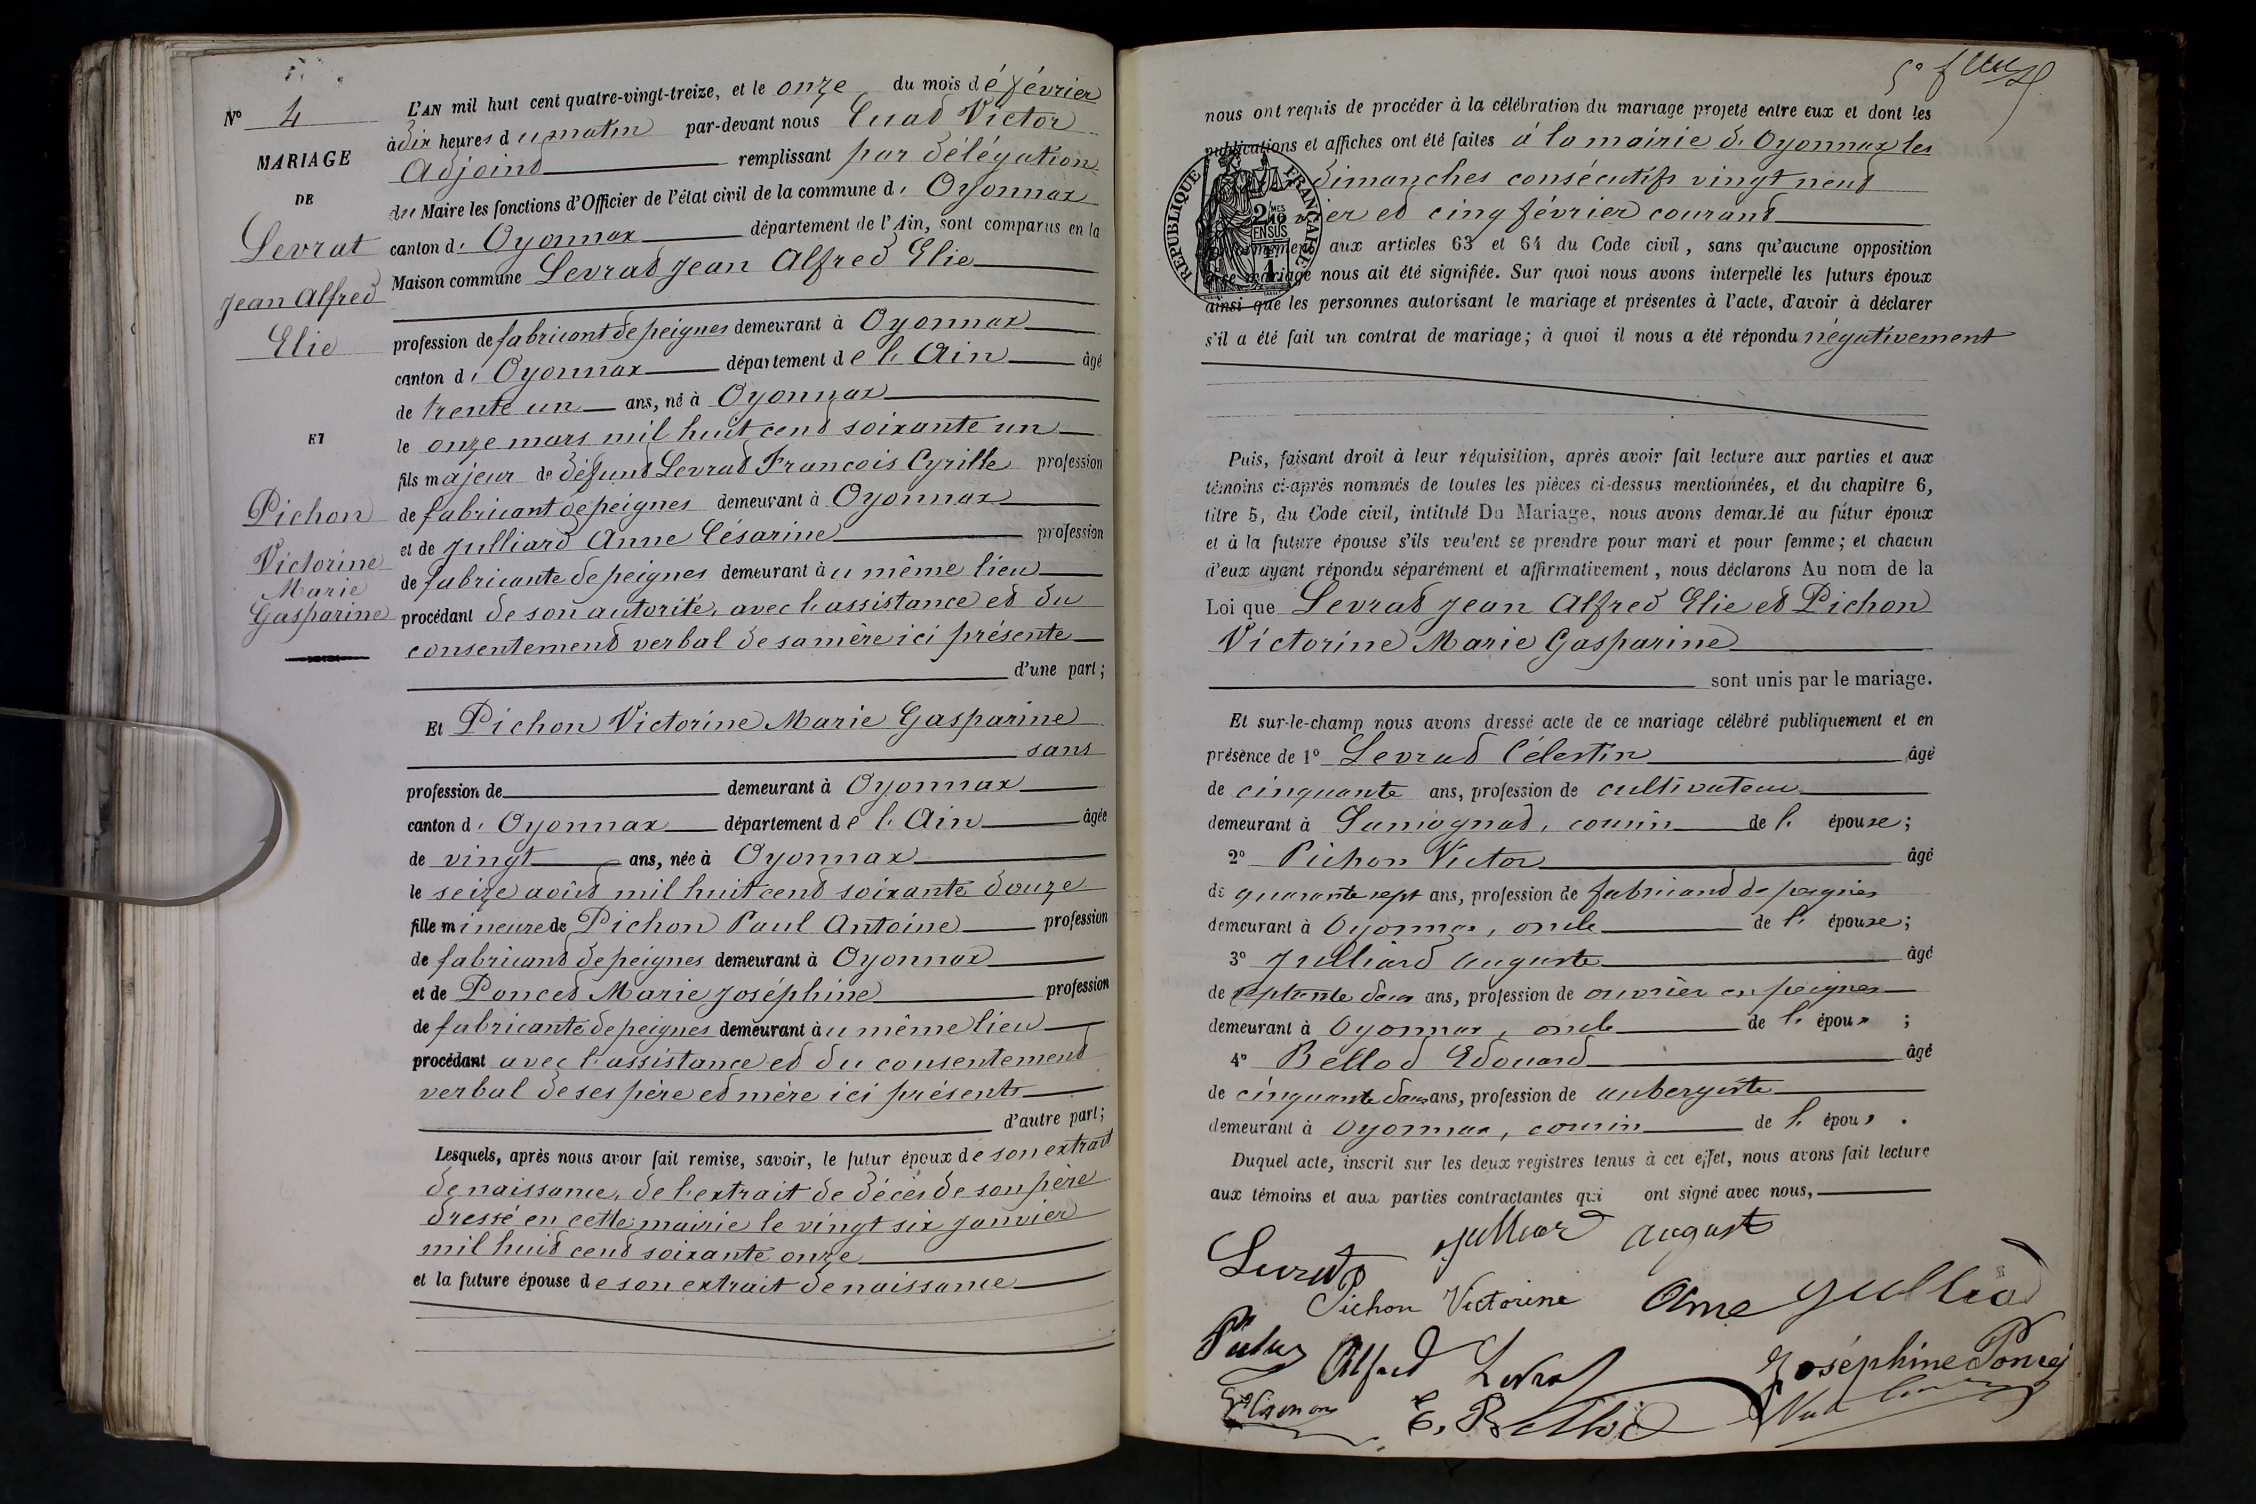 N° 4
MARIAGE
DE
Levrat
Jean Alfred
Elie
ET
Pichon
Victorine
Marie
Gasparine
L'AN mil huit cent quatre-vingt-treize, et le onze du mois de février
à dix heures du matin par-devant nous Cuat Victor
Adjoint remplissant par délégation
du Maire les fonctions d'Officier de l'état civil de la commune d' Oyonnax
canton d' Oyonnax département de l'Ain, sont comparus en la
Maison commune Levrat Jean Alfred Elie
profession de fabricant de peignes demeurant à Oyonnax
canton d' Oyonnax département de l'Ain âgé
de trente un ans, né à Oyonnax
le onze mars mil huit cent soixante un
fils majeur de défunt Levrat Francois Cyrille profession
de fabricant de peignes demeurant à Oyonnax
et de Julliard Anne Césarine profession
de fabricante de peignes demeurant au même lieu
procédant de son autorité, avec l'assistance et du
consentement verbal de sa mère ici présente
d'une part;
Et Pichon Victorine Marie Gasparine
sans
profession de demeurant à Oyonnax
canton d' Oyonnax département de l'Ain âgée
de vingt ans, née à Oyonnax
le seize août mil huit cent soixante douze
fille mineure de Pichon Paul Antoine profession
de fabricant de peignes demeurant à Oyonnax
et de Poncet Marie Joséphine profession
de fabricante de peignes demeurant au même lieu
procédant avec l'assistance et du consentement
verbal de ses père et mère ici présents
d'autre part;
Lesquels, après nous avoir fait remise, savoir, le futur époux de son extrait
de naissance, de l'extrait de décès de son père
dressé en cette mairie le vingt six janvier
mil huit cent soixante onze
et la future épouse de son extrait de naissance
nous ont requis de procéder à la célébration du mariage projeté entre eux et dont les
publications et affiches ont été faites à la mairie d'Oyonnax les
dimanches consécutifs vingt neuf
ier et cinq février courant
RÉPUBLIQUE FRANÇAISE
2/10 EN SUS
aux articles 63 et 64 du Code civil, sans qu'aucune opposition
mariage nous ait été signifiée. Sur quoi nous avons interpellé les futurs époux
ainsi que les personnes autorisant le mariage et présentes à l'acte, d'avoir à déclarer
s'il a été fait un contrat de mariage; à quoi il nous a été répondu négativement
Puis, faisant droit à leur réquisition, après avoir fait lecture aux parties et aux
témoins ci-après nommés de toutes les pièces ci-dessus mentionnées, et du chapitre 6,
titre 5, du Code civil, intitulé Du Mariage, nous avons demandé au futur époux
et à la future épouse s'ils veulent se prendre pour mari et pour femme; et chacun
d'eux ayant répondu séparément et affirmativement, nous déclarons Au nom de la
Loi que Levrat Jean Alfred Elie et Pichon
Victorine Marie Gasparine
sont unis par le mariage.
Et sur-le-champ nous avons dressé acte de ce mariage célébré publiquement et en
présence de 1° Levrat Célestin âgé
de cinquante ans, profession de cultivateur
demeurant à Samognat, cousin de l' épouse;
2° Pichon Victor âgé
de quarante sept ans, profession de fabricant de peignes
demeurant à Oyonnax, oncle de l' épouse;
3° Julliard Auguste âgé
de septante deux ans, profession de ouvrier en peignes
demeurant à Oyonnax, oncle de l' époux ;
4° Bellod Edouard âgé
de cinquante deux ans, profession de aubergiste
demeurant à Oyonnax, cousin de l' époux .
Duquel acte, inscrit sur les deux registres tenus à cet effet, nous avons fait lecture
aux témoins et aux parties contractantes qui ont signé avec nous,
Levrat Julliard August
Pichon Victorine Anne Julliard
Alfred Levrat Joséphine Poncet
E. Bellod